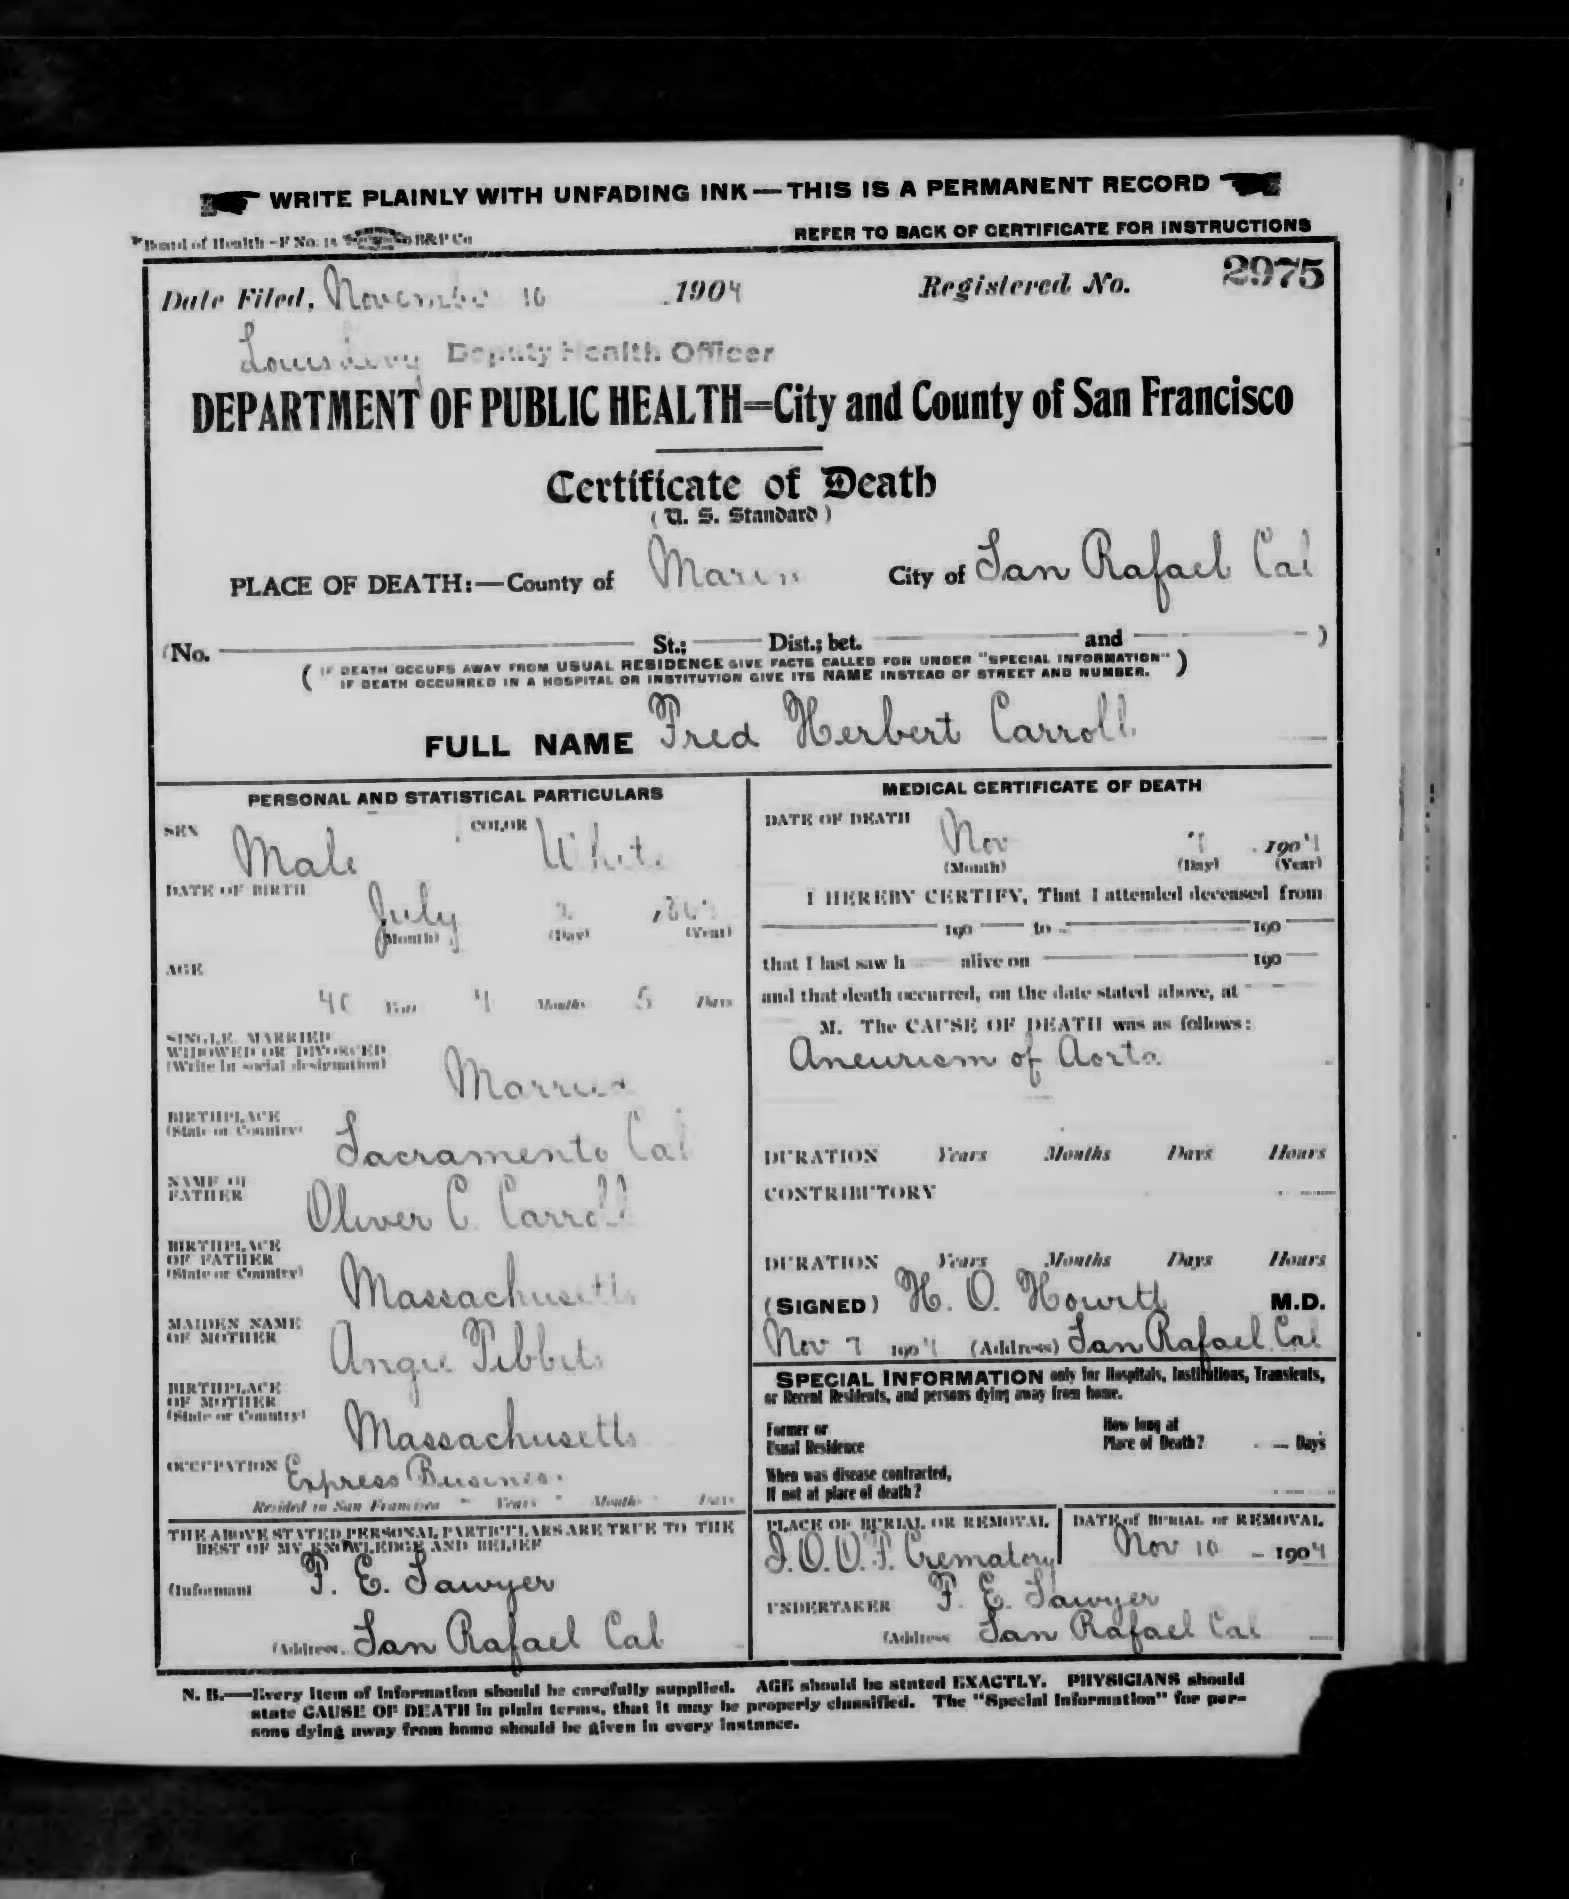 WRITE PLAINLY WITH UNFADING INK — THIS IS A PERMANENT RECORD
Board of Health - F No. 14 B&P Co
REFER TO BACK OF CERTIFICATE FOR INSTRUCTIONS
Date Filed, November 10 1904 Registered No. 2975
Louis Levy Deputy Health Officer
DEPARTMENT OF PUBLIC HEALTH=City and County of San Francisco
Certificate of Death
(U. S. Standard)
PLACE OF DEATH:—County of Marin City of San Rafael Cal
(No. St.; Dist.; bet. and )
( IF DEATH OCCURS AWAY FROM USUAL RESIDENCE GIVE FACTS CALLED FOR UNDER "SPECIAL INFORMATION" )
IF DEATH OCCURRED IN A HOSPITAL OR INSTITUTION GIVE ITS NAME INSTEAD OF STREET AND NUMBER.
FULL NAME Fred Herbert Carroll
PERSONAL AND STATISTICAL PARTICULARS
SEX Male COLOR White
DATE OF BIRTH July
(Month) (Day) (Year)
AGE
40 Years 4 Months 5 Days
SINGLE, MARRIED
WIDOWED OR DIVORCED
(Write in social designation)
Married
BIRTHPLACE
(State or Country)
Sacramento Cal
NAME OF
FATHER
Oliver C. Carroll
BIRTHPLACE
OF FATHER
(State or Country)
Massachusetts
MAIDEN NAME
OF MOTHER
Angie Tibbits
BIRTHPLACE
OF MOTHER
(State or Country)
Massachusetts
OCCUPATION Express Business
Resided in San Francisco Years Months Days
THE ABOVE STATED PERSONAL PARTICULARS ARE TRUE TO THE
BEST OF MY KNOWLEDGE AND BELIEF
(Informant F. E. Sawyer
(Address. San Rafael Cal
MEDICAL CERTIFICATE OF DEATH
DATE OF DEATH Nov 7 1904
(Month) (Day) (Year)
I HEREBY CERTIFY, That I attended deceased from
190 to 190
that I last saw h alive on 190
and that death occurred, on the date stated above, at
M. The CAUSE OF DEATH was as follows:
Aneurism of Aorta
DURATION Years Months Days Hours
CONTRIBUTORY
DURATION Years Months Days Hours
(SIGNED) H. O. Howitt M.D.
Nov 7 1904 (Address) San Rafael Cal
SPECIAL INFORMATION only for Hospitals, Institutions, Transients,
or Recent Residents, and persons dying away from home.
Former or
Usual Residence
How long at
Place of Death? Days
When was disease contracted,
If not at place of death?
PLACE OF BURIAL OR REMOVAL
I. O. O. F. Crematory
DATE of BURIAL or REMOVAL
Nov 10 1904
UNDERTAKER F. E. Sawyer
(Address San Rafael Cal
N. B.—Every item of information should be carefully supplied. AGE should be stated EXACTLY. PHYSICIANS should
state CAUSE OF DEATH in plain terms, that it may be properly classified. The "Special Information" for per-
sons dying away from home should be given in every instance.